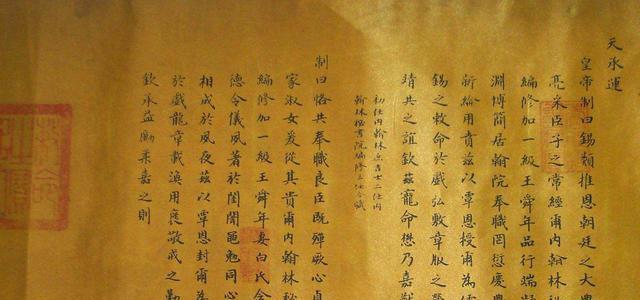 天承運
皇帝制曰錫類推恩朝廷之大典
亮采臣子之常經爾內翰林秘
編修加一級王舜年品行端
淵博簡居翰院奉職罔愆慶典
新綸用賁茲以覃恩授爾為儒
錫之敕命於戲弘敷章服之
靖共之誼欽茲寵命懋乃嘉猷
初任內翰林庶吉士二任內
翰林秘書院編修三任今職
制曰恪共奉職良臣既殫厥心貞
家淑女爰從其貴爾內翰林秘
編修加一級王舜年妻白氏含
德令儀夙著於閨闈黽勉同心
相成於夙夜茲以覃恩封爾為
於戲龍章載渙用褒敬戒之勤
欽承益勵柔嘉之則